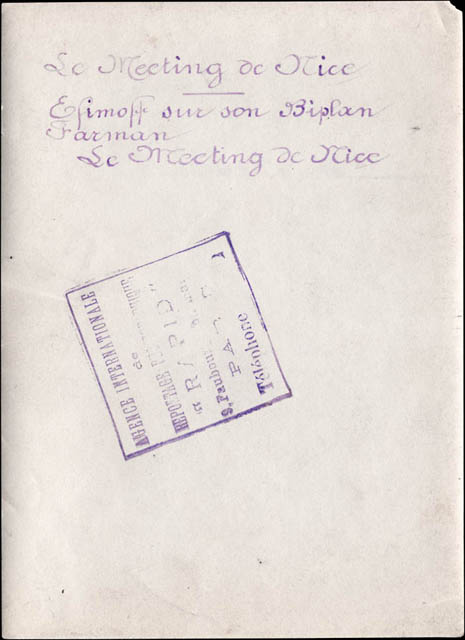 Le Meeting de Nice
Efimoff sur son Biplan
Farman
Le Meeting de Nice
AGENCE INTERNATIONALE
de
REPORTAGE
"RAPID"
Téléphone